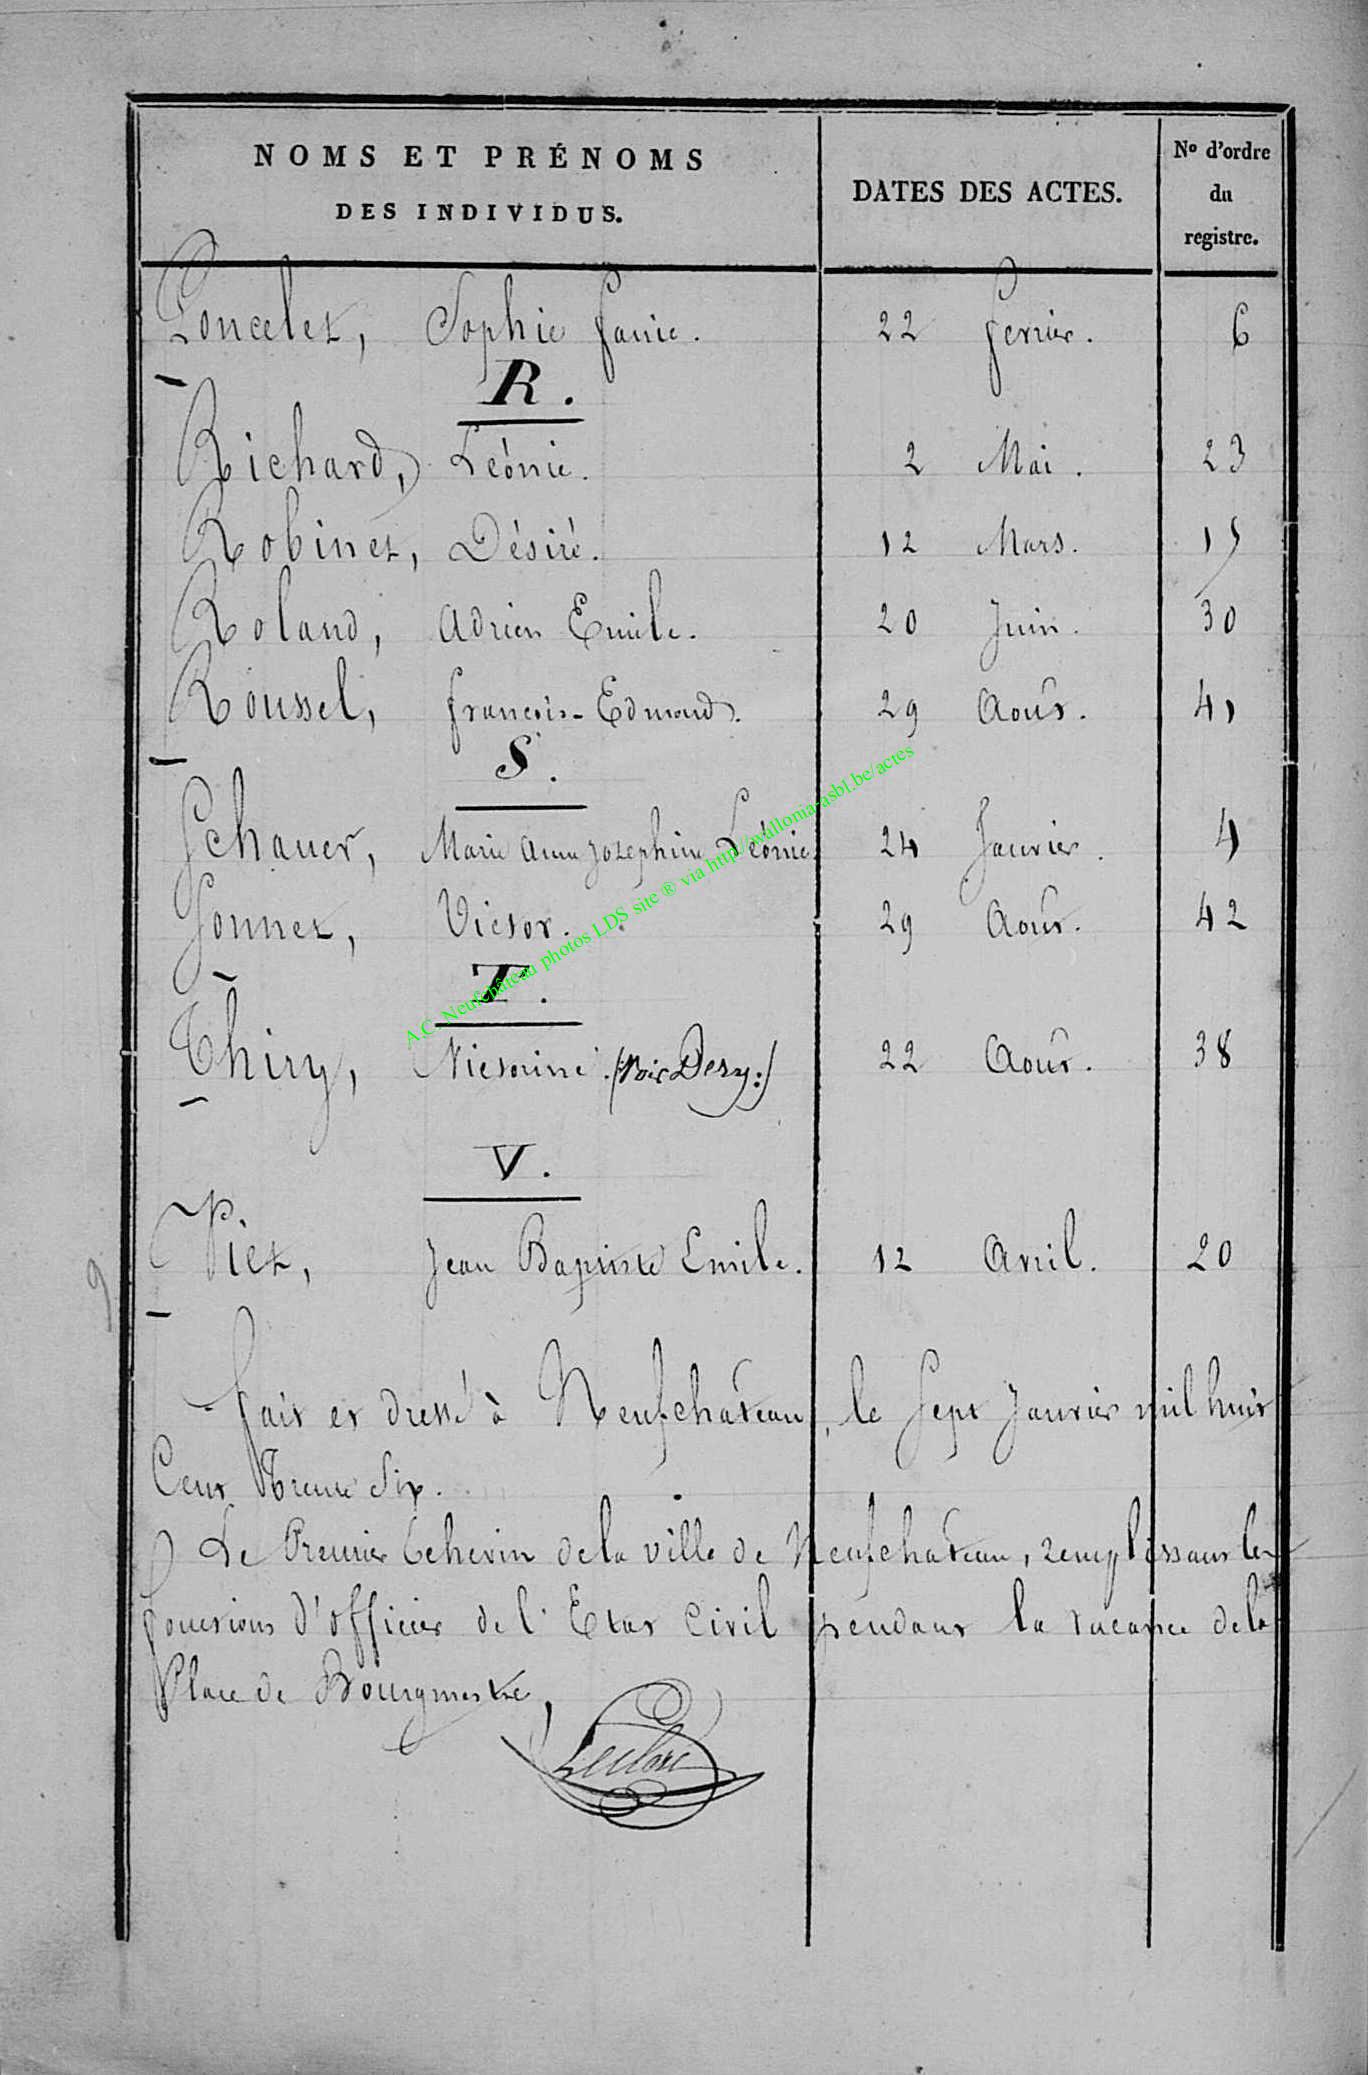 NOMS ET PRÉNOMS
DES INDIVIDUS.
DATES DES ACTES.
No d'ordre
du
registre.
Poncelet, Sophie fanie. 22 fevrier. 6
R.
Richard, Léonie. 2 Mai. 23
Robinet, Désiré. 12 Mars. 15
Roland, Adrien Emile. 20 Juin. 30
Roussel, françois-Edmond. 29 Août. 41
S.
Schauer, Marie Anne Josephine Léonie. 24 Janvier. 4
Sonnet, Victor. 29 Août. 42
T.
Thiry, Victorine. (Voir Dery:) 22 Août. 38
V.
Viet, Jean Baptiste Emile. 12 Avril. 20
fait et dressé à Neufchateau, le Sept Janvier mil huit
Cent Trente Six.
Le Premier Echevin de la ville de Neufchateau, remplissant les
fonctions d'officier de l'Etat Civil pendant la vacance de la
Place de Bourgmestre,
Leclerc
A.C. Neufchâteau photos LDS site ® via http://wallonia-asbl.be/actes
9